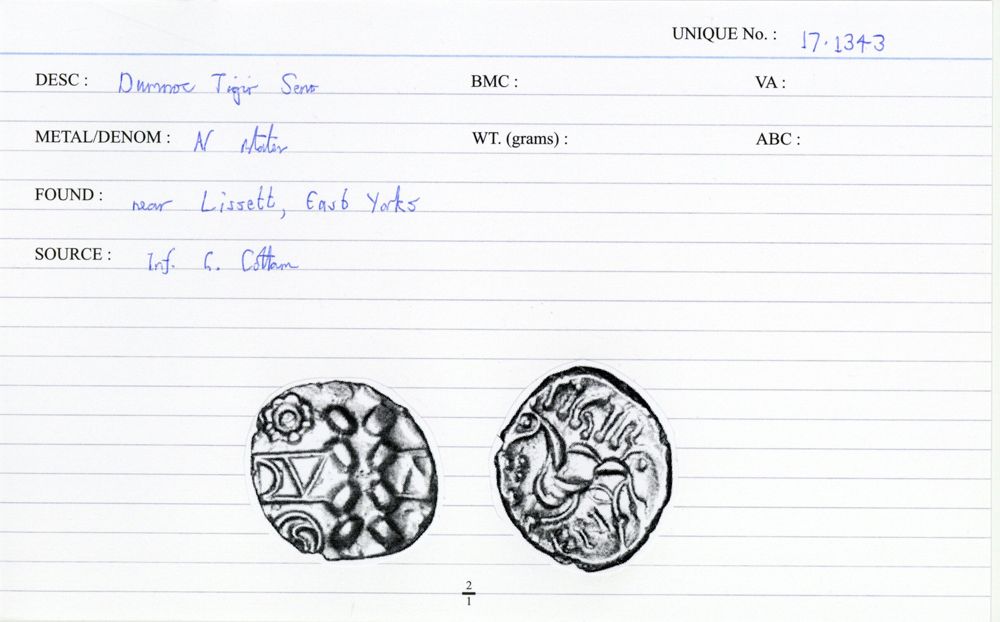 UNIQUE No. : 17.1343
DESC : Dumnoc Tigir Seno BMC : VA :
METAL/DENOM : AV stater WT. (grams) : ABC :
FOUND : near Lissett, East Yorks
SOURCE : Inf. G. Cottam
2
1